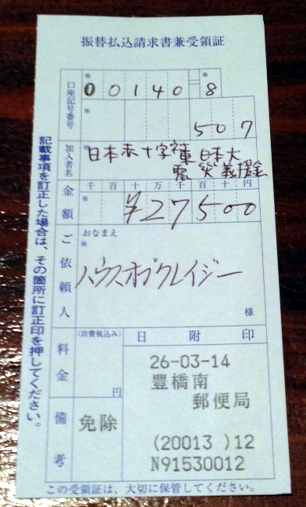 振替払込請求書兼受領証
口座記号番号
00140=8
507
加入者名
日本赤十字社 東日本大
震災義援金
金額
千百十万千百十円
¥27500
ご依頼人
おなまえ
ハウスオブクレイジー
様
料金
(消費税込み)
円
日附印
26-03-14
豊橋南
郵便局
(20013)12
N91530012
備考
免除
この受領証は、大切に保管してください。
記載事項を訂正した場合は、その箇所に訂正印を押してください。